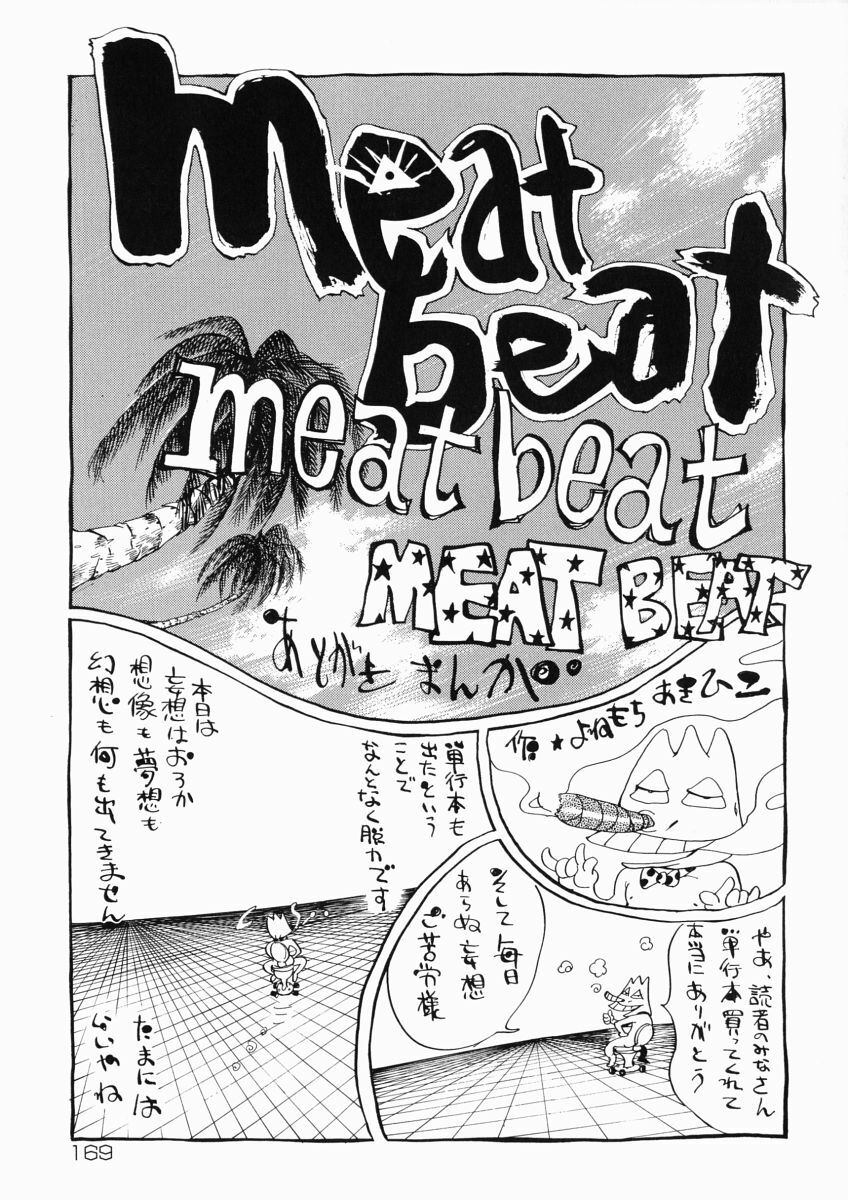 meat
beat
meat beat
MEAT BEAT
あとがきまんが
作★よねもちあきひこ
やあ、読者のみなさん
単行本買ってくれて
本当にありがとう
そして毎日
あらぬ妄想
ご苦労様
単行本も
出たという
ことで
なんとなく脱力です
本日は
妄想はおろか
想像も夢想も
幻想も何も出てきません
たまには
いいやね
169